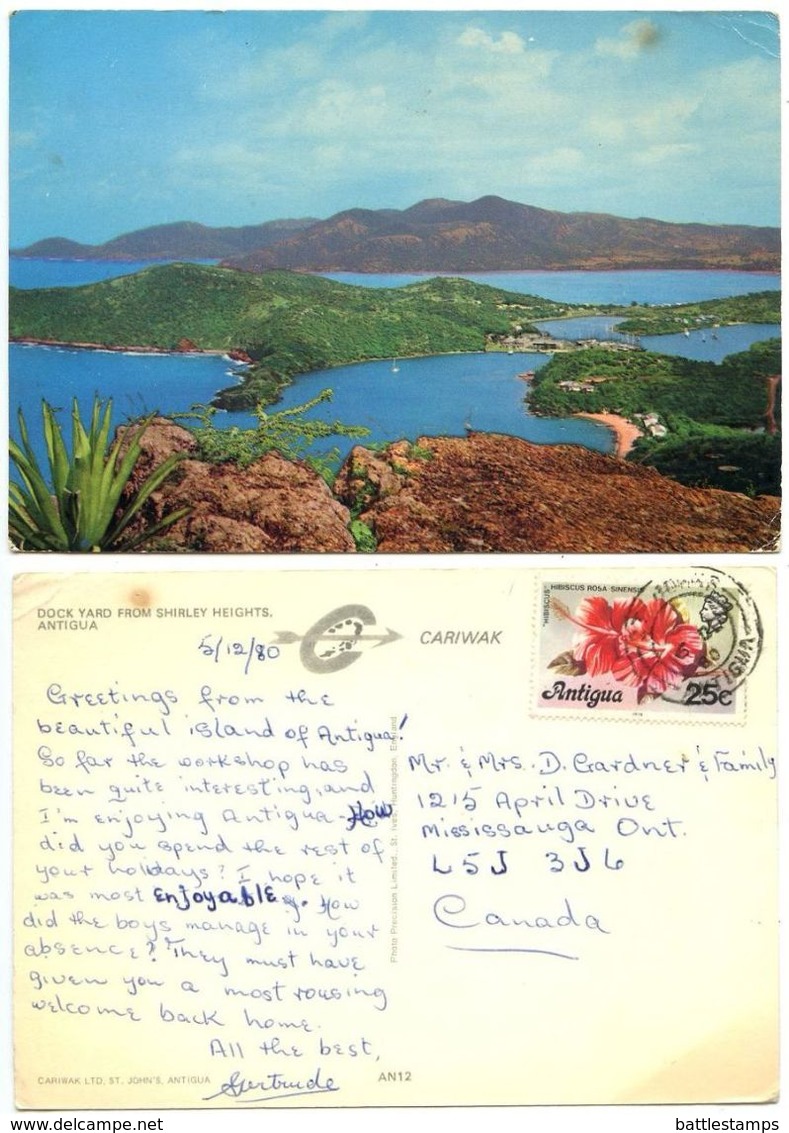 DOCK YARD FROM SHIRLEY HEIGHTS.
ANTIGUA
CARIWAK
"HIBISCUS" HIBISCUS ROSA SINENSIS
Antigua 25c
ANTIGUA
5/12/80
Greetings from the
beautiful island of Antigua!
So far the workshop has
been quite interesting, and
I'm enjoying Antigua. How
did you spend the rest of
your holidays? I hope it
was most enjoyable. How
did the boys manage in your
absence? They must have
given you a most rousing
welcome back home.
All the best,
Gertrude
Mr. & Mrs. D. Gardner & Family
1215 April Drive
Mississauga Ont.
L5J 3J6
Canada
Photo Precision Limited., St. Ives, Huntingdon, England
CARIWAK LTD, ST. JOHN'S, ANTIGUA
AN12
battlestamps